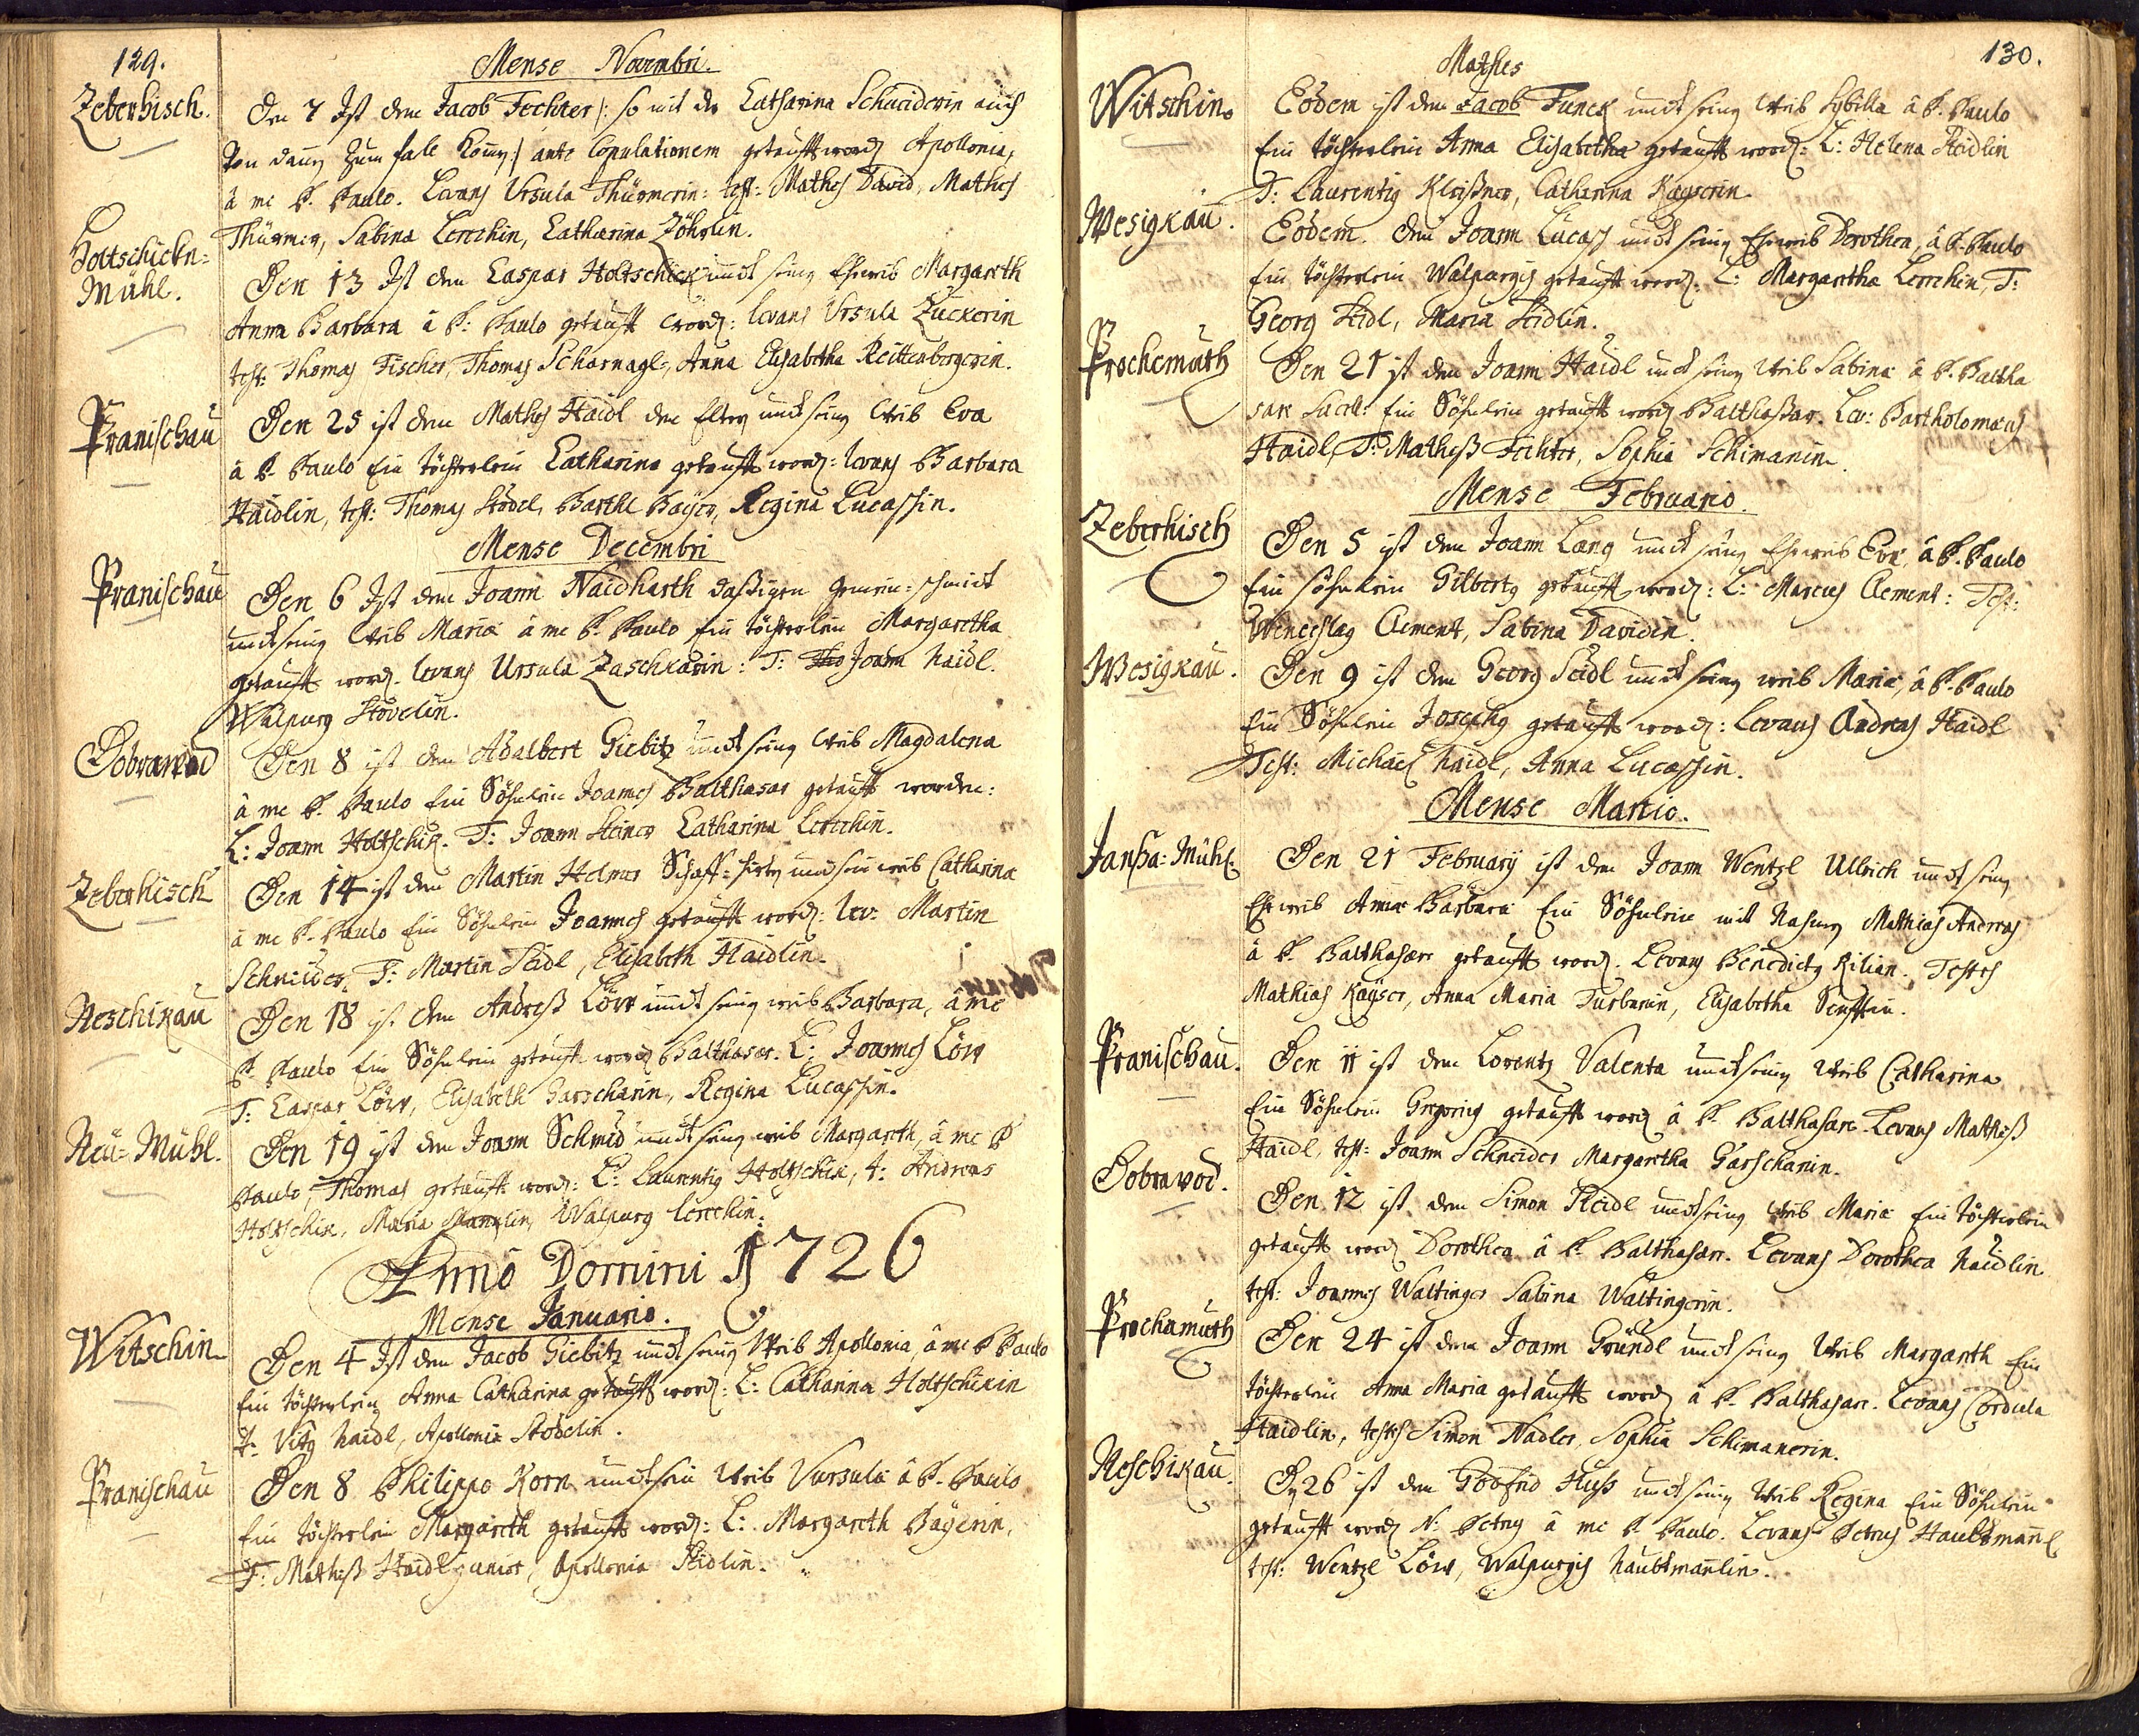 129.
Mense Novembri.
Zeberhisch.
Den 7 Ist dem Jacob Fechter /: so mit der Catharina Schneiderin auch
von dann zum fall komen :/ ante Copulationem getaufft word Apollonia,
â me P. Paulo. Levans Ursula Thürmerin: test: Mathes David, Mathes
Thürmer, Sabina Lerchin, Catharina Zöhrlin.
Holtschickn=
Mühl.
Den 13 Ist dem Caspar Holtschick undt seinen Eheweib Margareth
Anna Barbara â P: Paulo getaufft word: levans Ursula Zuckerin
test: Thomas Fischer, Thomas Scharnagl, Anna Elisabetha Reittenbergerin.
Pranischau
Den 25 ist dem Mathes Haidl den Eltern undt seinen Weib Eva
â P. Paulo Ein töchterlein Catharina getaufft word: levans Barbara
Haidlin, test: Thomas Stödel, Barthl Bayer, Regina Lucassin.
Mense Decembri
Pranischau
Den 6 Ist dem Joann Naidharth dasigen gemein=schmidt
undt seinen Weib Maria â me P. Paulo Ein töchterlein Margaretha
getaufft word. levans Ursula Zaschkarin: T: Joann Haidl.
Walpurg Stövelin.
Dobrawod
Den 8 ist dem Adalbert Giebitz undt seinen Weib Magdalena
â me P. Paulo Ein Söhnlein Joannes Balthasar getaufft worden:
L: Joann Holtschik. T: Joann Steiner Catharina Lerchin.
Zeberhisch
Den 14 ist dem Martin Helmer Schaff=hirten und sein weib Catharina
â me P. Paulo Ein Söhnlein Joannes getaufft word: lev: Martin
Schneider, T: Martin Seidl, Elisabeth Haidlin.
Neschikau
Den 18 ist dem Andreß Löw undt seinen weib Barbara, â me
P. Paulo Ein Söhnlein getaufft word Balthasar. L: Joannes Löw
T: Caspar Löw, Elisabeth Garschanin, Regina Lucassin.
Neü=Mühl.
Den 19 ist dem Joann Schmid undt seinen weib Margareth, â me P
Paulo, Thomas getaufft word: L: Laurentig Holtschik, t: Andreas
Holtschik, Maria Manzlin, Walpurg lerchin.
Anno Domini 1726
Mense Januario.
Witschin
Den 4 Ist dem Jacob Giebitz undt seinen Weib Apollonia, â me P Paulo
Ein töchterlein Anna Catharina getaufft word: L: Catharina Holtschikin
T. Vitg Haidl, Apollonia Stödelin.
Pranischau
Den 8 Philippo Korn undt sein Weib Vursula â P. Paulo
Ein töchterlein Margareth getaufft word: L: Margareth Bayerin,
T: Matheß Haidl junior, Apollonia Seidlin.
130.
Mathes
Witschin.
Eodem ist dem Jacob Funck undt seinen Weib Sybilla â P. Paulo
Ein töchterlein Anna Elisabetha getaufft word: L: Helena Seidlin
T: Laurentig Kleißner, Catharina Kayserin.
Wesigkau.
Eodem. dem Joann Lucass undt seinen Eheweib Dorothea, â P. Paulo
Ein töchterlein Walpurgis getaufft word. L: Margaretha Lerchin, T:
Georg Seidl, Maria Seidlin.
Prochomuth
Den 21 ist dem Joann Haidl undt seinen Weib Sabina â P. Baltha
sare Sacell: Ein Söhnlein getaufft word Balthaßar. Lev: Bartholomæus
Haidl, T: Matheß Fechter, Sophia Schimanin.
Mense Februario.
Zeberhisch
Den 5 ist dem Joann Lang undt seinen Eheweib Eva, â P. Paulo
Ein söhnlein Gilbertg getaufft word: L: Marcus Clement: Test:
Wenceslag Clement, Sabina Davidin.
Wesigkau.
Den 9 ist dem Georg Seidl undt seinen weib Maria, â P. Paulo
Ein Söhnlein Josephg getaufft word: Levans Andreas Haidl
Test: Michael Haidl, Anna Lucassin.
Mense Martio.
Janßa=Mühl.
Den 21 February ist dem Joann Wentzl Ullrich undt seinen
Eheweib Anna Barbara Ein Söhnlein mit Nahmen Mathias Andreas
â P. Balthasare getaufft word. Levans Benedictg Kilian. Testes
Mathias Kayser, Anna Maria Turbanin, Elisabetha Senfftin.
Pranischau.
Den 11 ist dem Lorentz Valenta undt seinen Weib Catharina
Ein Söhnlein Gregorius getaufft word â P. Balthasare. Levans Matheß
Haidl, test: Joann Schneider Margaretha Garschanin.
Dobravod.
Den 12 ist dem Simon Seidl undt seinen Weib Maria Ein töchterlein
getaufft word Dorothea â P. Balthasare. Levans Dorothea Haidlin
test: Joannes Waltinger Sabina Waltingerin.
Prochamuth
Den 24 ist dem Joann Gründl undt seinen Weib Margareth Ein
töchterlein Anna Maria getaufft word â P. Balthasare. Levans Cordula
Haidlin, testes Simon Nadler, Sophia Schimanerin.
Neschikau.
Den 26 ist dem Godfrid Huß undt seinen Weib Regina Ein Söhnlein
getaufft word N: Petrus â me P. Paulo. Levans Petrus Haubtmanl
test: Wentzl Löw, Walpurgis Haubtmanlin.